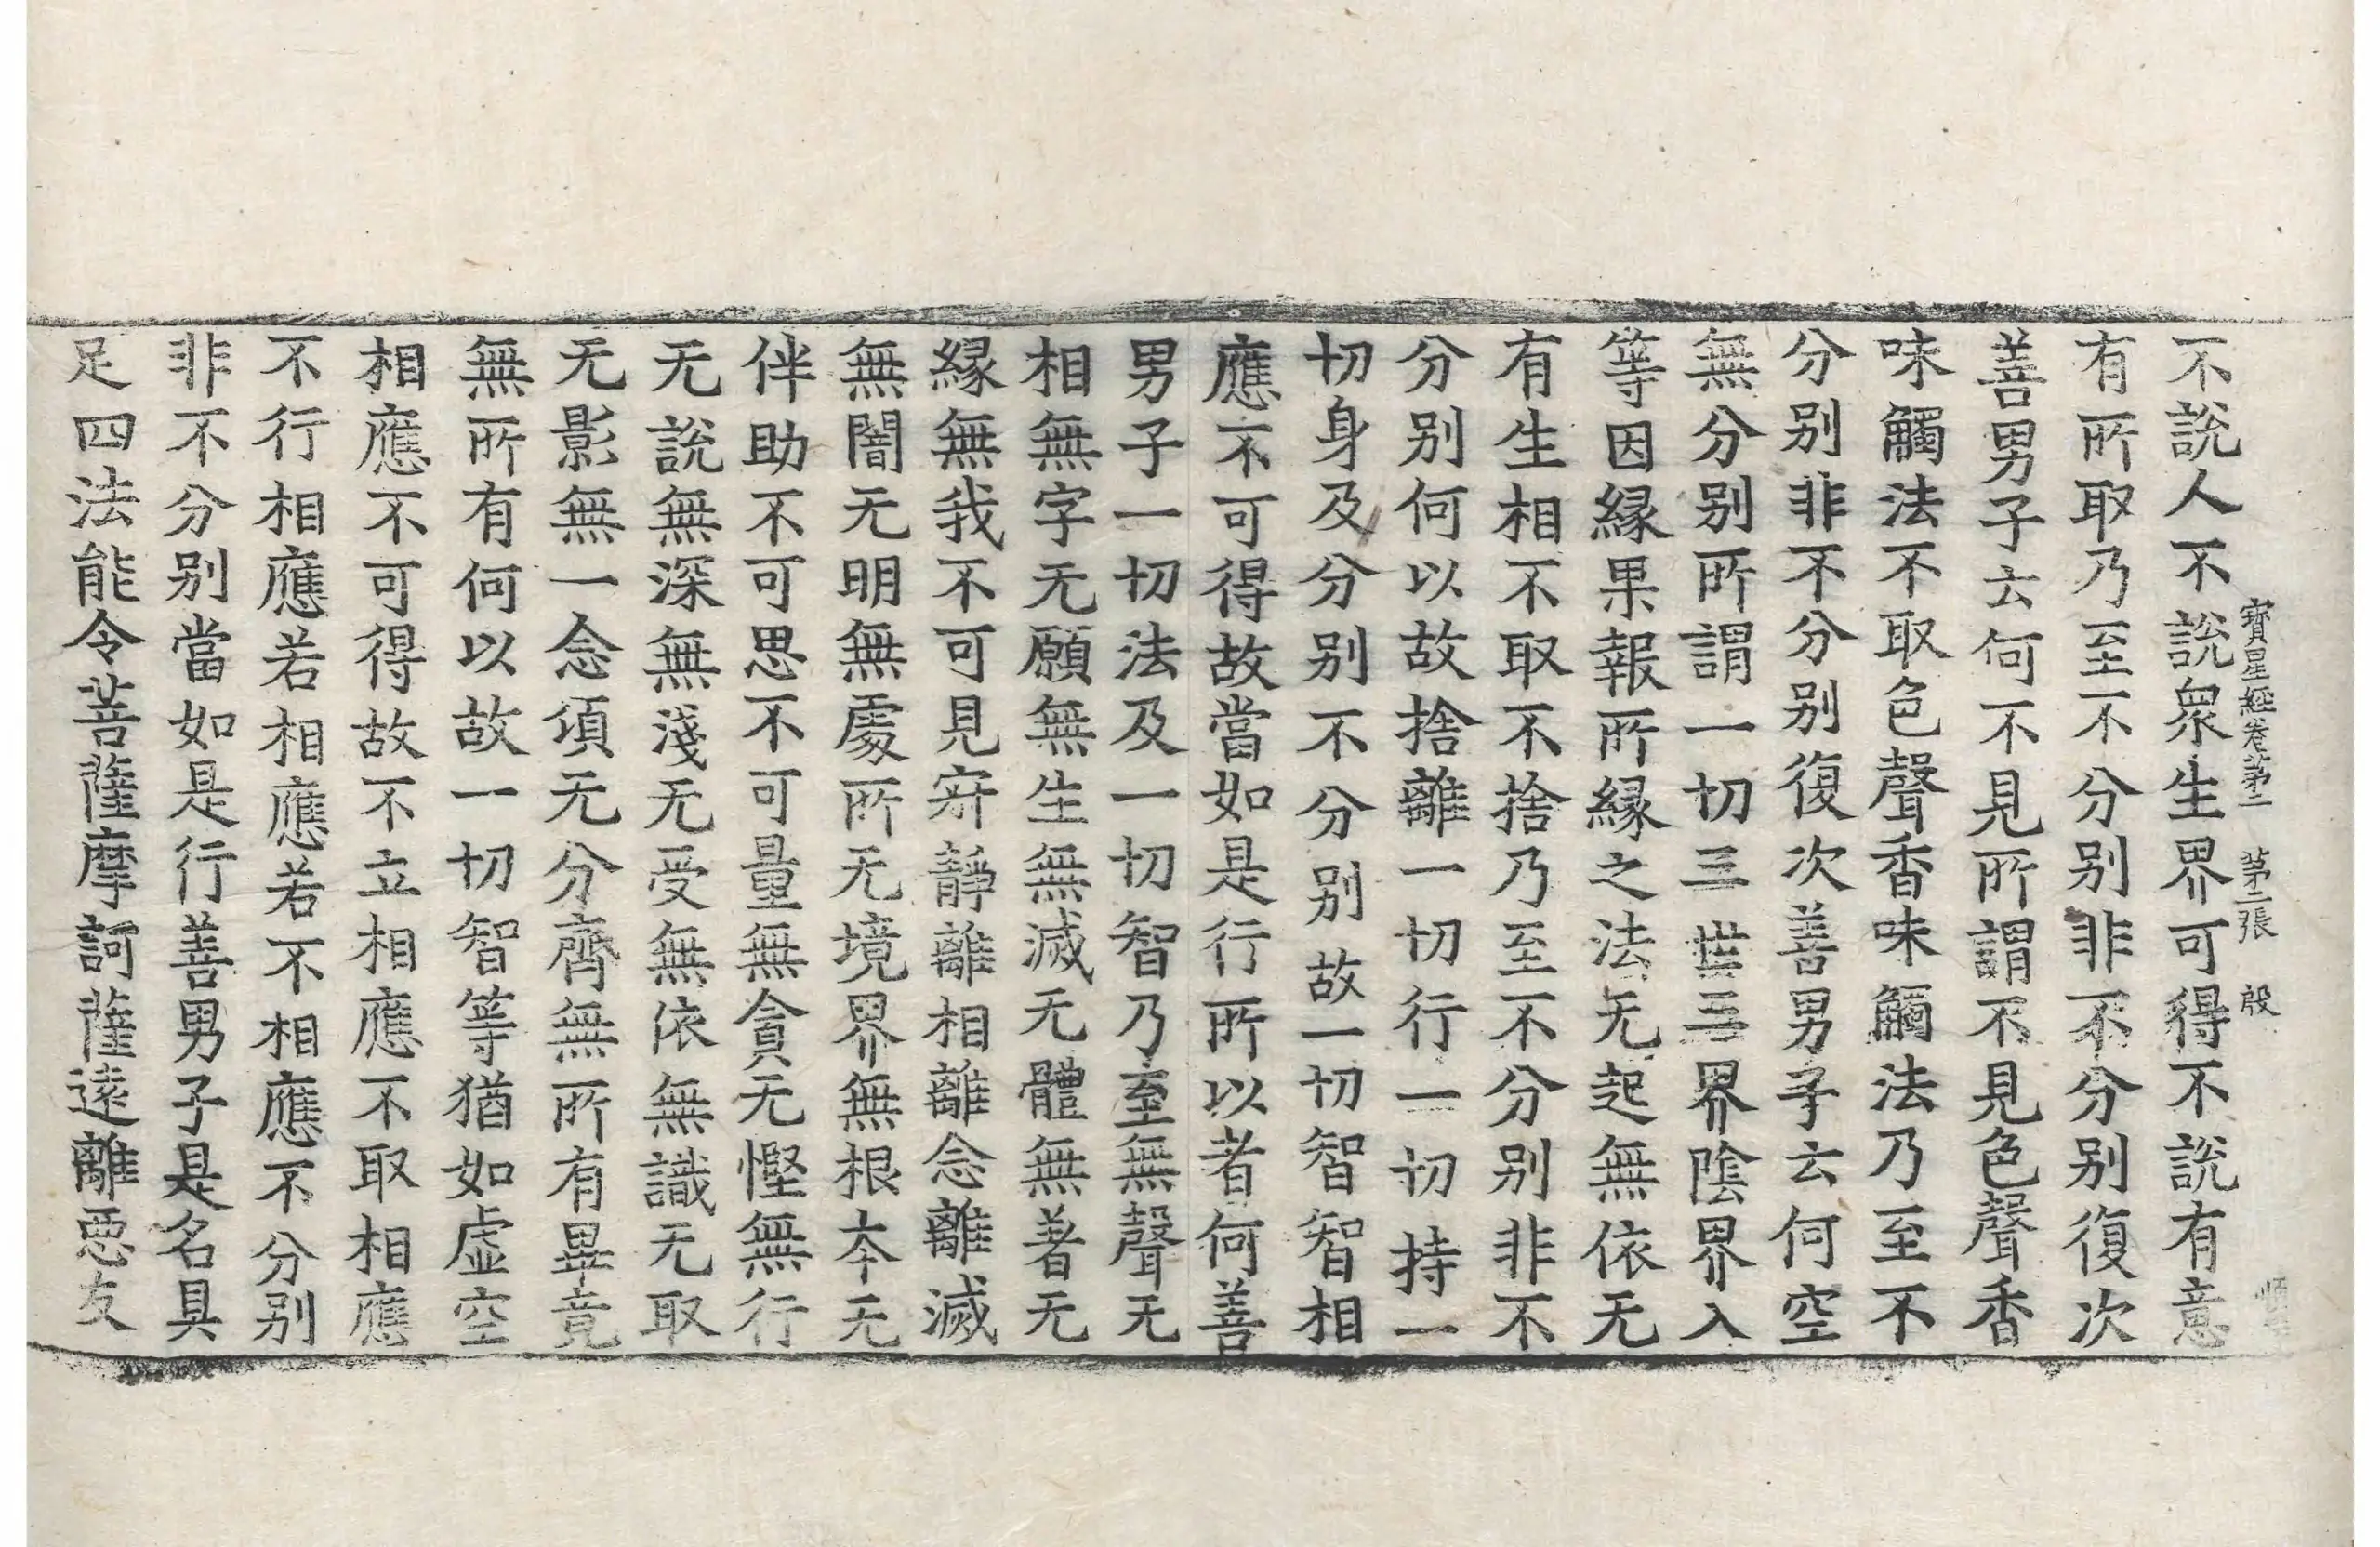 寶星經卷苐二　苐二張　殷
不說人不說衆生界可得不說有意
有所取乃至不分别非不分别復次
善男子云何不見所謂不見色聲香
味觸法不取色聲香味觸法乃至不
分别非不分别復次善男子云何空
無分别所謂一切三世三界陰界入
等因緣果報所緣之法无起無依无
有生相不取不捨乃至不分别非不
分别何以故捨離一切行一切持一
切身及分别不分别故一切智智相
應不可得故當如是行所以者何善
男子一切法及一切智乃至無聲无
相無字无願無生無滅无體無著无
緣無我不可見寂靜離相離念離滅
無闇无明無處所无境界無根夲无
伴助不可思不可量無貪无慳無行
无說無深無淺无受無依無識无取
无影無一念頃无分齊無所有畢竟
無所有何以故一切智等猶如虛空
相應不可得故不立相應不取相應
不行相應若相應若不相應不分别
非不分别當如是行善男子是名具
足四法能令菩薩摩訶薩遠離惡友